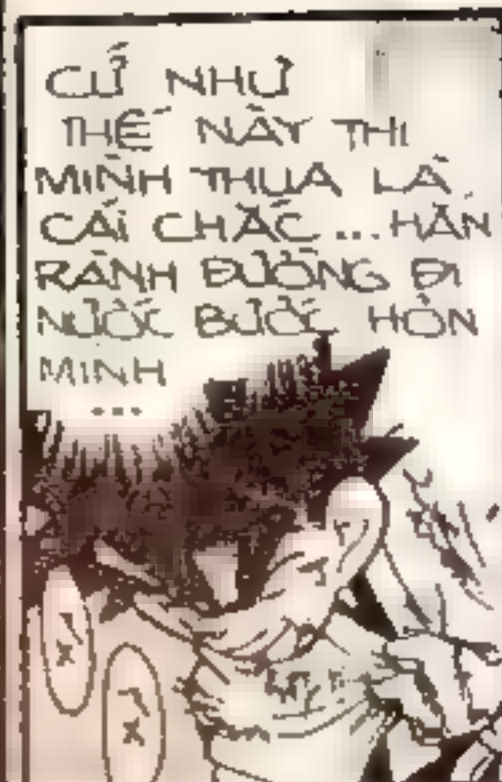 CỨ NHƯ
THẾ NÀY THÌ
MÌNH THUA LÀ
CÁI CHẮC... HẮN
RÀNH ĐƯỜNG ĐI
NƯỚC BƯỚC HƠN
MÌNH
...